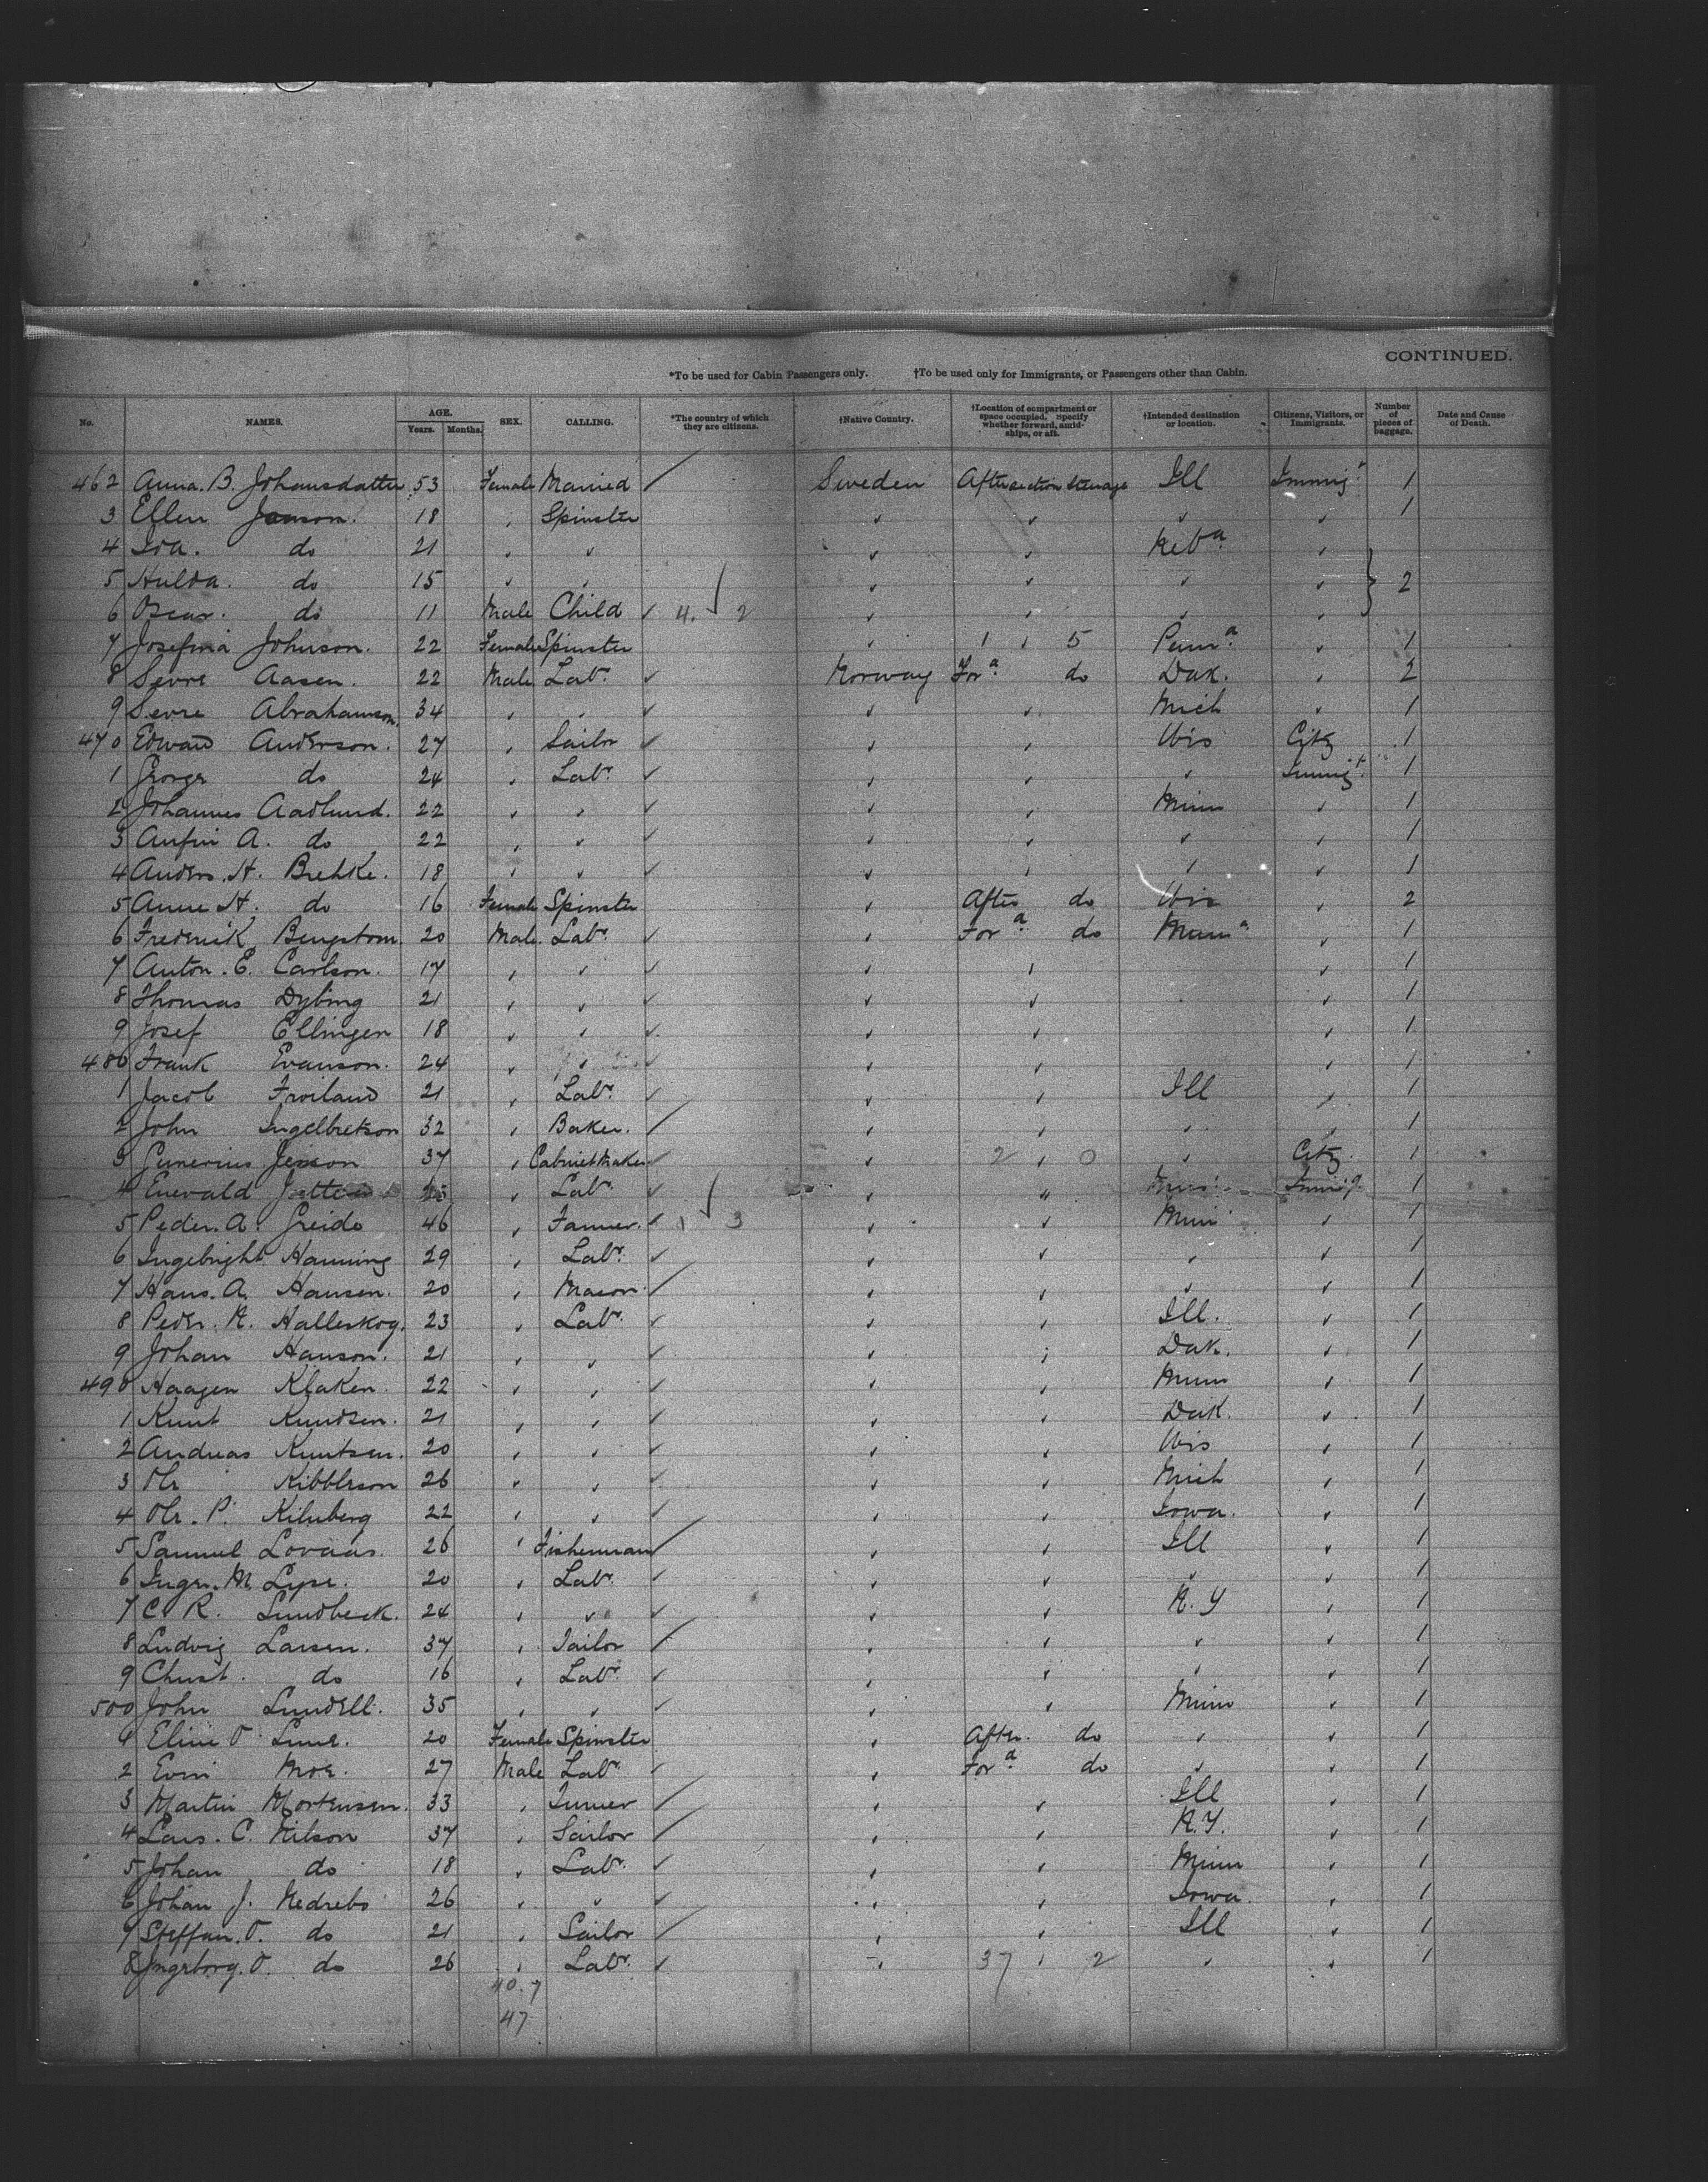 CONTINUED.
*To be used for Cabin Passengers only. †To be used only for Immigrants, or Passengers other than Cabin.
No. NAMES. AGE. Years. Months. SEX. CALLING. *The country of which they are citizens. †Native Country. †Location of compartment or space occupied. Specify whether forward, amidships, or aft. †Intended destination or location. Citizens, Visitors, or Immigrants. Number of pieces of baggage. Date and Cause of Death.
462 Anna. B. Johansdatter 53 Female Married Sweden After section steerage Ill Immigt 1
3 Ellen Janson. 18 " Spinster " " " " 1
4 Ida. do 21 " " " " Neba "
5 Hulda. do 15 " " " " " " } 2
6 Oscar. do 11 Male Child 4. 2 " " " "
7 Josefina Johnson. 22 Female Spinster " 1 " 5 Penna " 1
8 Sevre Aasen. 22 Male Labr Norway Ford do Dak. " 2
9 Sevre Abrahamson. 34 " " " " Mich " 1
470 Edward Anderson. 27 " Sailor " " Wis Citz 1
1 George do 24 " Labr " " " Immigt 1
2 Johannes Aadlund. 22 " " " " Minn " 1
3 Anfin A. do 22 " " " " " " 1
4 Anders. H. Brehke. 18 " " " " " " 1
5 Anne H. do 16 Female Spinster " After do Wis " 2
6 Frederick Bengstom 20 Male. Labr " Ford do Minn " 1
7 Anton. E. Carlson. 17 " " " " " 1
8 Thomas Dybing 21 " " " " " 1
9 Josef Ellingen 18 " " " " " 1
480 Frank Evanson. 24 " " " " " 1
1 Jacob Froiland 21 " Labr " " Ill " 1
2 John Ingelbretson 32 " Baker. " " " " 1
3 Gunerius Jenson 37 " Cabinet Maker " 2 " 0 " Citz. 1
4 Enevald " Labr " " Immigt 1
5 Peder. A. Greido 46 " Farmer. 1 3 " " Minn " 1
6 Ingebright Hanning 29 " Labr " " " " 1
7 Hans. A. Hansen. 20 " Mason " " " " 1
8 Peder. K. Halleskog. 23 " Labr " " Ill. " 1
9 Johan Hanson. 21 " " " " Dak. " 1
490 Haagen Klaken. 22 " " " " Minn " 1
1 Knut Knudsen. 21 " " " " Dak. " 1
2 Andreas Knutsen. 20 " " " " Wis " 1
3 Ole Kibblrson 26 " " " " Mich " 1
4 Ole. P. Kilnberg 22 " " " " Iowa. " 1
5 Samuel Lovaas. 26 " Fisherman " " Ill " 1
6 Inger. M. Lyse. 20 " Labr " " " " 1
7 C. R. Lundbeck. 24 " " " " N.Y " 1
8 Ludvig Larsen. 37 " Tailor " " " " 1
9 Christ. do 16 " Labr " " " " 1
500 John Lundell. 35 " " " " Minn " 1
1 Eline O. Lune. 20 Female Spinster " After. do " " 1
2 Evin Moe. 27 Male Labr " Ford do " " 1
3 Martin Mortensen. 33 " Turner " " Ill " 1
4 Lars. C. Nilson 37 " Sailor " " N.Y. " 1
5 Johan do 18 " Labr " " Minn " 1
6 Johan J. Nedrebo 26 " " " " Iowa. " 1
7 Steffan. O. do 21 " Sailor " " Ill " 1
8 Ingeborg. O. do 26 " Labr " 37 " 2 " " 1
40. 7
47